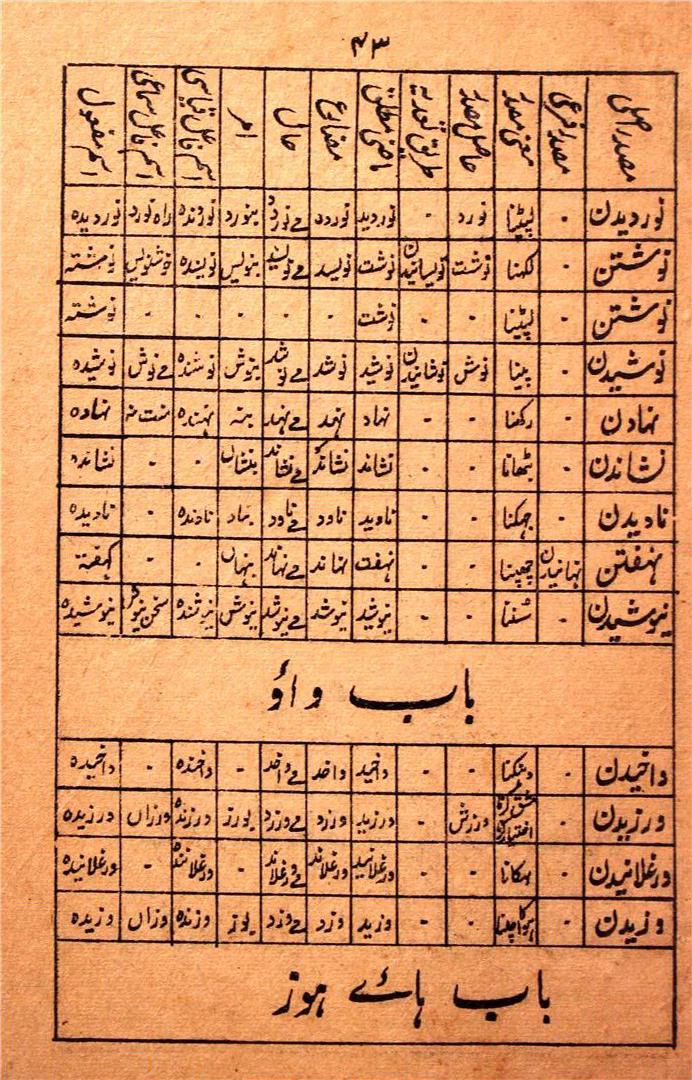 ۴۳
مصدر اصلی مصدر فرعی معنی مصدر حاصل مصدر طریق تعدیہ ماضی مطلق مضارع حال امر اسم فاعل قیاسی اسم فاعل سماعی اسم مفعول
نوردیدن - لپیٹنا نورد - نوردید نوردد مے نوردد بنورد نوردندہ راہ نورد نوردیدہ
نوشتن - لکھنا نوشت نویسانیدن نوشت نویسد مے نویسد بنویس نویسندہ خوشنویس نوشتہ
نوشتن - لپیٹنا - - نوشت - - - - - نوشتہ
نوشیدن - پینا نوش نوشانیدن نوشید نوشد مے نوشد بنوش نوشندہ مے نوش نوشیدہ
نہادن - رکھنا - - نہاد نہد مے نہد بنہ نہندہ نہادہ
نشاندن - بٹھانا - - نشاند نشاند مے نشاند بنشاں - - نشاندہ
نادیدن - جھکنا - - ناوید ناود مے ناود نادندہ - نادیدہ
نہفتن نہانیدن چھپنا - - نہفت نہاند مے نہاند بنہاں - -
نیوشیدن - سننا - - نیوشید نیوشد مے نیوشد بنیوش نیوشندہ سخن نیوش نیوشیدہ
باب واؤ
واخیدن - - - واخید واخد مے واخد - واخندہ - واخیدہ
ورزیدن - اختیار کرنا ورزش - ورزید ورزد مے ورزد بورز ورزندہ ورزاں ورزیدہ
ورغلانیدن - بہکانا - - ورغلانید ورغلاند مے ورغلاند - ورغلانندہ - ورغلانیدہ
وزیدن - ہوا چلنا - - وزید وزد مے وزد بوز وزندہ وزاں وزیدہ
باب ہائے ہوز